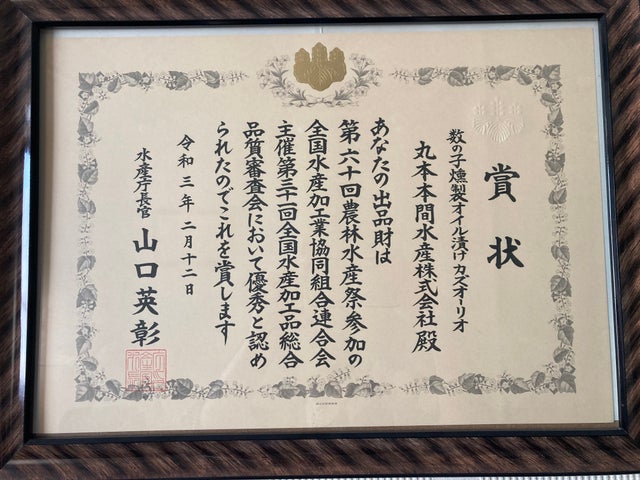 賞状
数の子燻製オイル漬けカズオ・リオ
丸本本間水産株式会社殿
あなたの出品財は
第六十回農林水産祭参加の
全国水産加工業協同組合連合会
主催第三十一回全国水産加工品総合
品質審査会において優秀と認め
られたのでこれを賞します
令和三年二月十二日
水産庁長官
山口英彰